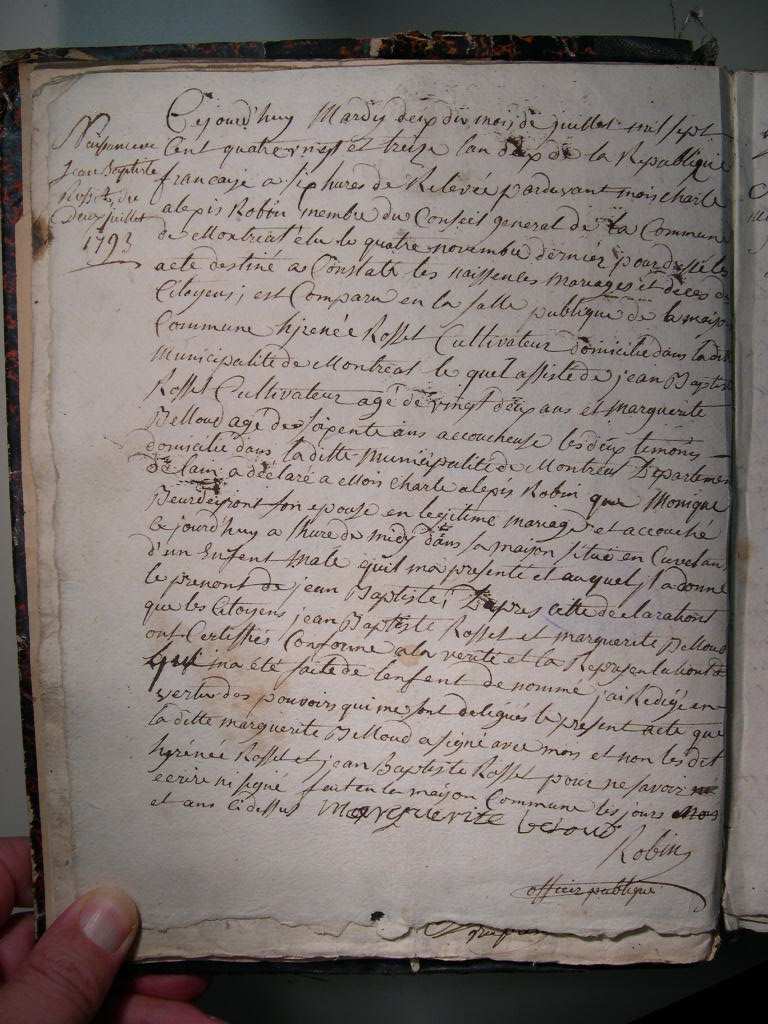 Naissance de
Jean Baptiste
Rosset du
Deux juillet
1793
Cejourd'huy Mardy deux du mois de juillet mil sept
Cent quatre vingt et treize lan deux de la Republique
francaise a six hures de Relevée pardevant mois charle
alexis Robin membre du Conseil general de la Commune
de Montreal élu le quatre novembre dernier pour dressé les
acte destiné a Constate les naissences mariages et déces de
Citoyens; est Comparu en la salle publique de la maison
Commune hirenée Rosset Cultivateur domicilié dans la ditt
Municipalité de Montreal le quel assisté de jean Baptiste
Rosset Cultivateur agé de vingt deux ans et marguerite
Belloud agé de soixente ans accoucheuse les deux temoins
domicilié dans la ditte Municipalité de Montreal Departement
De lain a déclaré a Mois Charle alexis Robin que Monique
son epouse en legitime mariage et accouché
Cejourd'huy a lhure de midy dans sa maison situé en
d'un Enfent Male quil ma presenté et auquel il a donné
le prenont de jean Baptiste, Dapres cette declarationt
que les Citoyens jean Baptiste Rosset et marguerite Belloud
ont Certiffiés Conforme a la verité et la Representationt
qui ma été faite de lenfent denommé jai Redigé en
vertu des pouvoirs qui me sont deligués le present acte que
la ditte marguerite Belloud a signé avec mois et non les dit
hirenée Rosset et jean Baptiste Rosset pour ne savoir ni
ecrire ni signé fait en la maison Commune les jours mois
et ans cidessus Marguerite beloud
Robin
officier publique